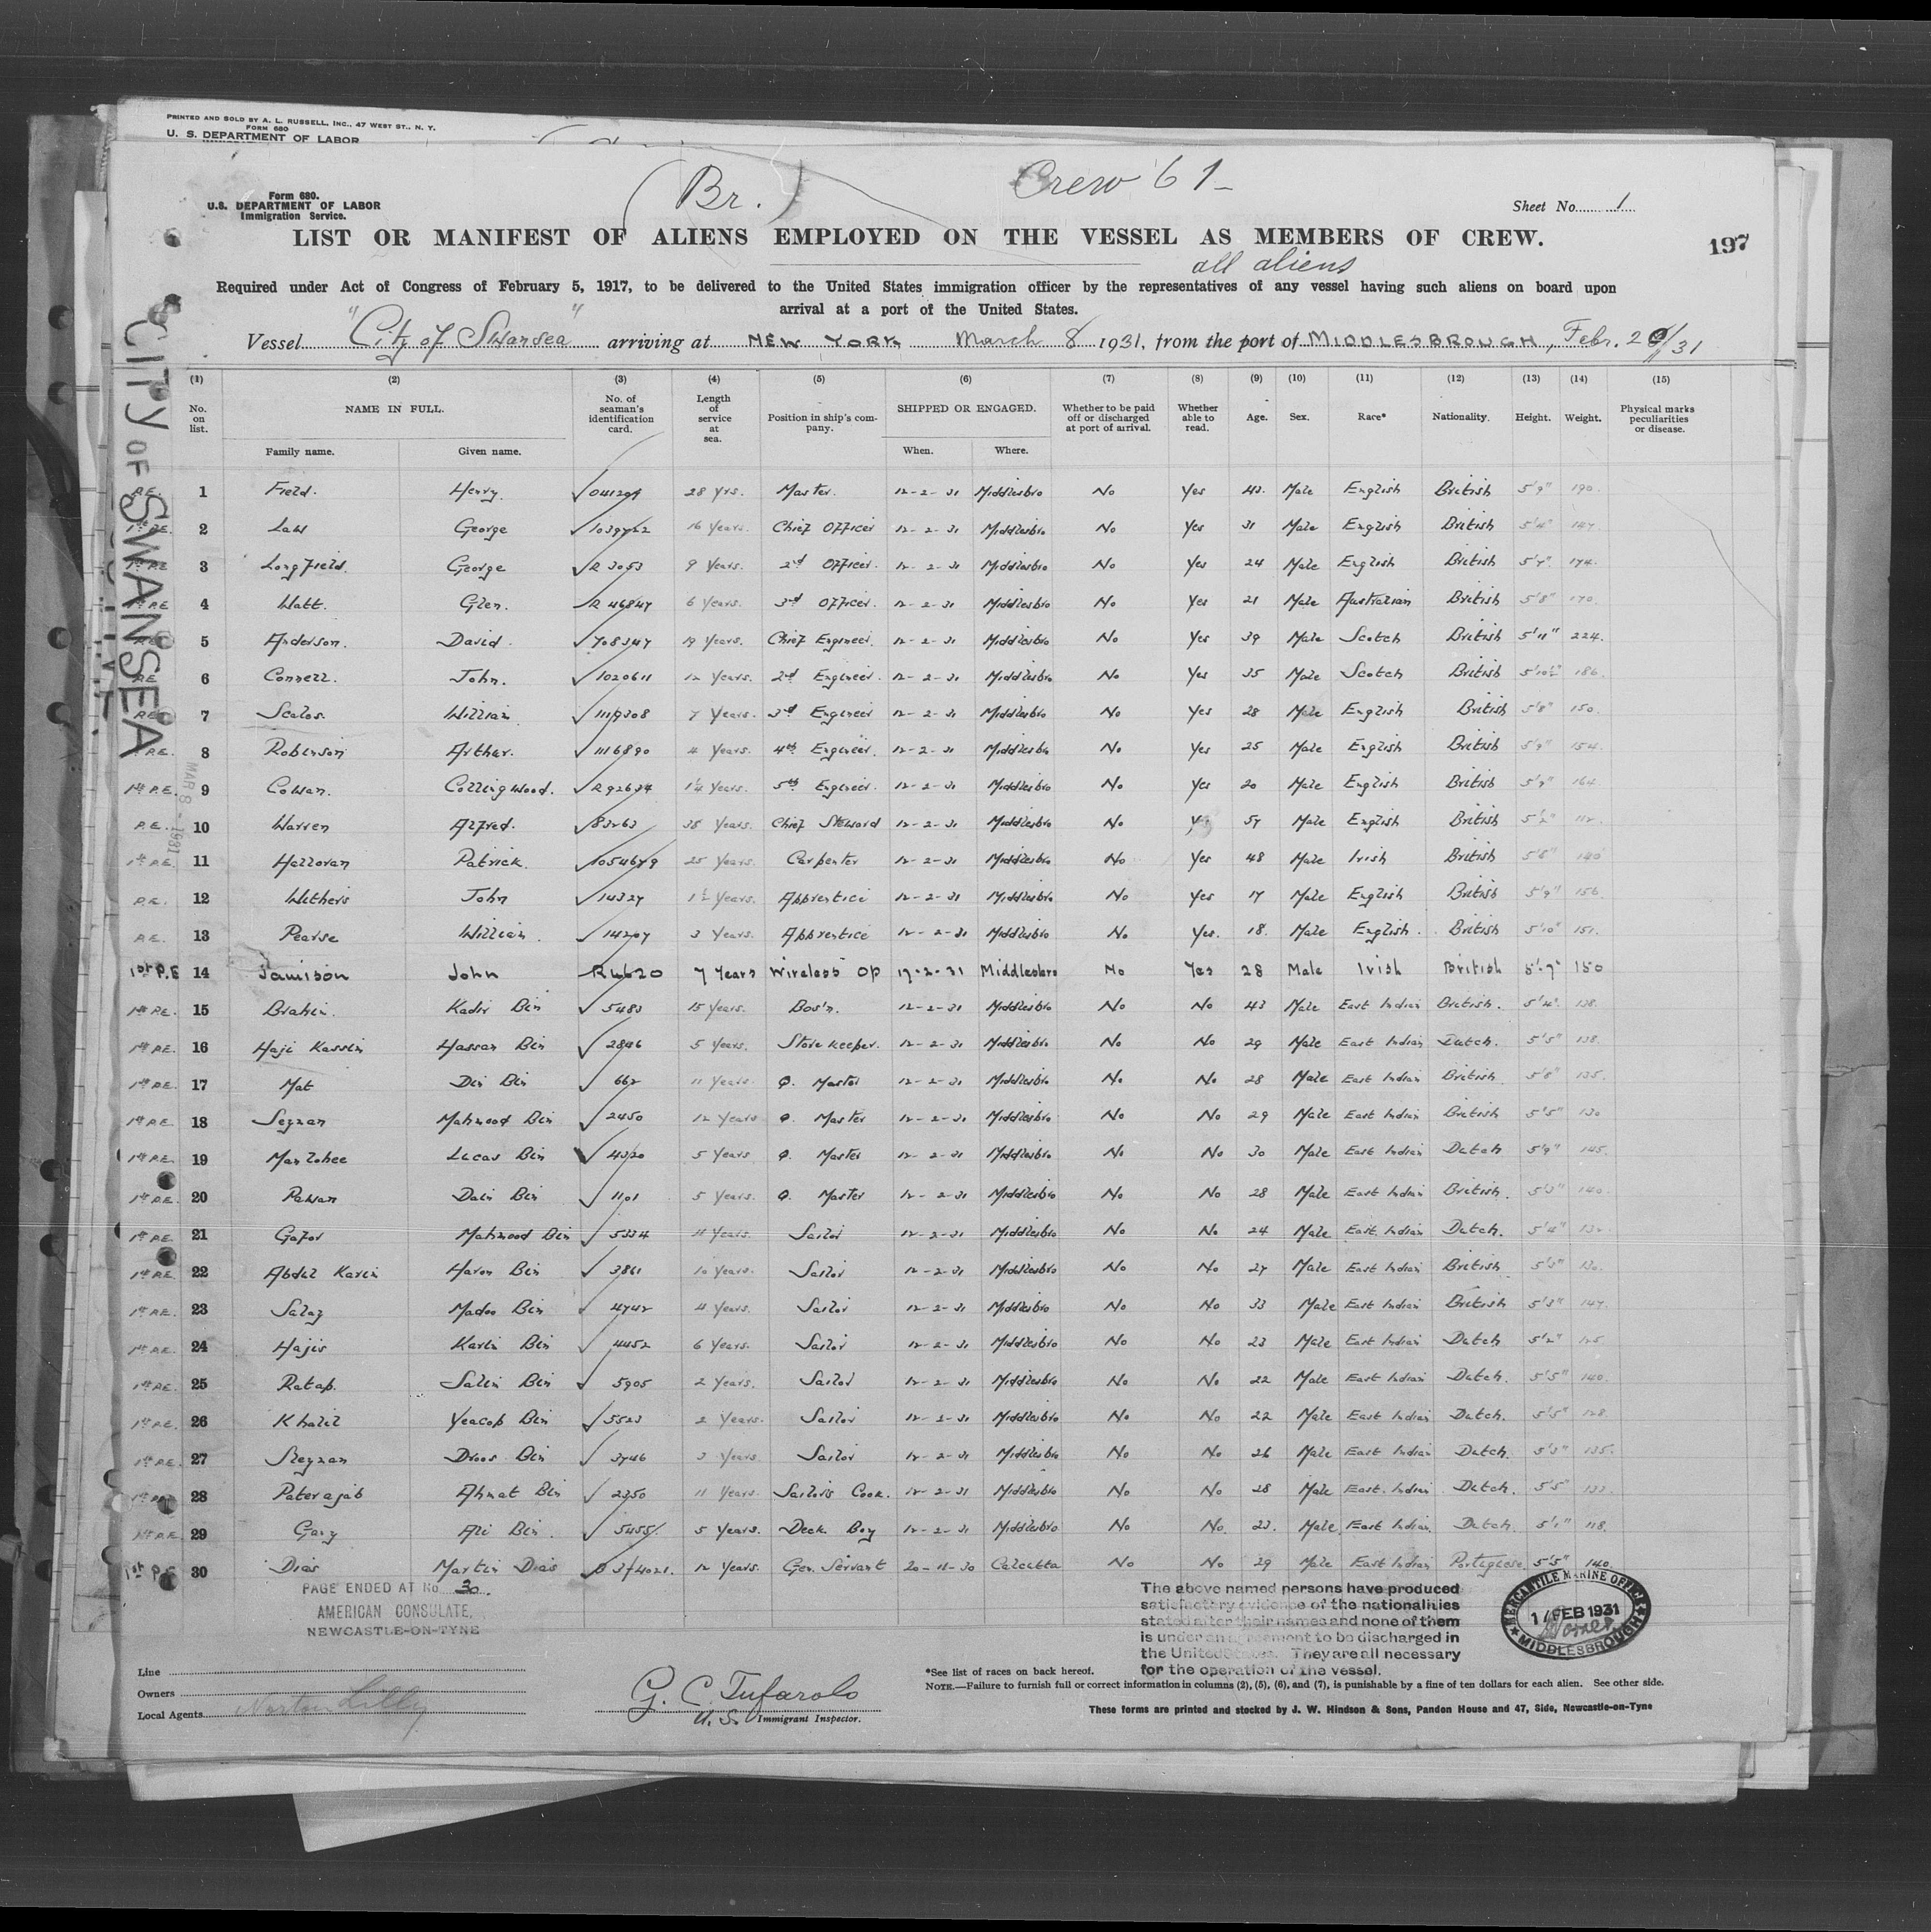 PRINTED AND SOLD BY A. L. RUSSELL, INC., 47 WEST ST., N. Y.
FORM 680
U. S. DEPARTMENT OF LABOR
(Br.) Crew 61-
Form 680.
U.S. DEPARTMENT OF LABOR
Immigration Service.
Sheet No. 1
LIST OR MANIFEST OF ALIENS EMPLOYED ON THE VESSEL AS MEMBERS OF CREW.
197
all aliens
Required under Act of Congress of February 5, 1917, to be delivered to the United States immigration officer by the representatives of any vessel having such aliens on board upon
arrival at a port of the United States.
Vessel "City of Swansea" arriving at NEW YORK March 8 1931, from the port of MIDDLESBROUGH, Febr. /31
CITY OF SWANSEA
MAR 8 - 1931
(1) (2) (3) (4) (5) (6) (7) (8) (9) (10) (11) (12) (13) (14) (15)
No. on list. NAME IN FULL. No. of seaman's identification card. Length of service at sea. Position in ship's company. SHIPPED OR ENGAGED. Whether to be paid off or discharged at port of arrival. Whether able to read. Age. Sex. Race* Nationality. Height. Weight. Physical marks peculiarities or disease.
Family name. Given name. When. Where.
P.E. 1 Field. Henry. 28 yrs. Master. 12-2-31 Middlesbro No Yes 43. Male English British 5'9" 190.
2 Law George 16 Years. Chief Officer 12-2-31 Middlesbro No Yes 31 Male English British 5'4" 147
3 Longfield. George R 3053 9 Years. 2nd Officer. 12-2-31 Middlesbro No Yes 24 Male English British 5'7" 174.
4 Watt. Glen. R 46847 6 Years. 3rd Officer. 12-2-31 Middlesbro No Yes 21 Male Australian British 5'8" 170.
5 Anderson. David. 708347 19 Years. Chief Engineer. 12-2-31 Middlesbro No Yes 39 Male Scotch British 5'11" 224.
6 Connell. John. 1020611 12 Years. 2nd Engineer. 12-2-31 Middlesbro No Yes 35 Male Scotch British 5'10½" 186.
7 Scales. William 1119308 7 Years. 3rd Engineer 12-2-31 Middlesbro No Yes 28 Male English British 5'8" 150.
8 Robinson Arthur. 1116890 4 Years. 4th Engineer. 12-2-31 Middlesbro No Yes 25 Male English British 5'9" 154.
1st P.E. 9 Cowan. Collingwood. R92634 1¼ Years. 5th Engineer. 12-2-31 Middlesbro No Yes 20 Male English British 5'9" 164
P.E. 10 Warren Alfred. 83263 38 Years. Chief Steward 12-2-31 Middlesbro No Yes 57 Male English British 5'2" 112.
1st P.E. 11 Halloran Patrick. 1054679 25 Years. Carpenter 12-2-31 Middlesbro No Yes 48 Male Irish British 5'8" 140
P.E. 12 Withers John 14327 1½ Years. Apprentice 12-2-31 Middlesbro No Yes 17 Male English British 5'9" 156
P.E. 13 Pearse William. 14207 3 Years. Apprentice 12-2-31 Middlesbro No Yes. 18. Male English. British 5'10" 151.
1st P.E 14 Jamison John 7 Years Wireless Op 17-2-31 Middlesbro No Yes 28 Male Irish British 5'-7" 150
1st P.E. 15 Brahim. Kadir Bin 5483 15 Years. Bos'n. 12-2-31 Middlesbro No No 43 Male East Indian British. 5'4". 138.
1st P.E. 16 Haji Kassim Hassan Bin 2846 5 Years. Store keeper. 12-2-31 Middlesbro No No 29 Male East Indian Dutch. 5'5" 138.
1st P.E. 17 Mat Din Bin 662 11 Years Q. Master 12-2-31 Middlesbro No No 28 Male East Indian British 5'8" 135.
1st P.E. 18 Seyman Mahmood Bin 2450 12 Years Q. Master 12-2-31 Middlesbro No No 29 Male East Indian British 5'5" 130
1st P.E. 19 Manlohee Lucas Bin 4320 5 Years Q. Master 12-2-31 Middlesbro No No 30 Male East Indian Dutch 5'9" 145.
1st P.E. 20 Pawan Daim Bin 1101 5 Years. Q. Master 12-2-31 Middlesbro No No 28 Male East Indian British. 5'3" 140.
1st P.E. 21 Gafor Mahmood Bin 5334 11 Years. Sailor 12-2-31 Middlesbro No No 24 Male East Indian Dutch. 5'4" 132
1st P.E. 22 Abdul Karim Haron Bin 3861 10 Years. Sailor 12-2-31 Middlesbro No No 27 Male East Indian British 5'3" 130.
1st P.E. 23 Salag Madoo Bin 4742 11 Years. Sailor 12-2-31 Middlesbro No No 33 Male East Indian British 5'3" 147.
1st P.E. 24 Hajis Karim Bin 4452 6 Years. Sailor 12-2-31 Middlesbro No No 23 Male East Indian Dutch 5'2" 125
1st P.E. 25 Ratap. Salim Bin 5905 2 Years. Sailor 12-2-31 Middlesbro No No 22 Male East Indian Dutch. 5'5" 140.
1st P.E. 26 Khalil Yeacop Bin 5523 2 Years. Sailor 12-2-31 Middlesbro No No 22 Male East Indian Dutch. 5'5" 128.
1st P.E. 27 Sleyman Droos Bin 3746 3 Years Sailor 12-2-31 Middlesbro No No 26 Male East Indian Dutch. 5'3" 135.
28 Paterajab Ahmat Bin 2350 11 Years. Sailors Cook. 12-2-31 Middlesbro No No 28 Male East Indian Dutch. 5'5" 133.
1st P.E. 29 Gany Ali Bin. 5455 5 Years. Deck Boy 12-2-31 Middlesbro No No. 23. Male East Indian Dutch. 5'1" 118.
1st P.E 30 Dias Martin Dias 12 Years. Gen. Servant 20-11-30 Calcutta No No 29 Male East Indian Portugese 5'5" 140.
PAGE ENDED AT No 30.
AMERICAN CONSULATE,
NEWCASTLE-ON-TYNE
The above named persons have produced
satisfactory evidence of the nationalities
stated after their names and none of them
is under an agreement to be discharged in
the United States. They are all necessary
for the operation of the vessel.
MERCANTILE MARINE OFFICE
17 FEB 1931
MIDDLESBROUGH
Line
Owners
Local Agents Norton Lilly
G. C. Tufarolo
U. S. Immigrant Inspector.
*See list of races on back hereof.
NOTE.—Failure to furnish full or correct information in columns (2), (5), (6), and (7), is punishable by a fine of ten dollars for each alien. See other side.
These forms are printed and stocked by J. W. Hindson & Sons, Pandon House and 47, Side, Newcastle-on-Tyne